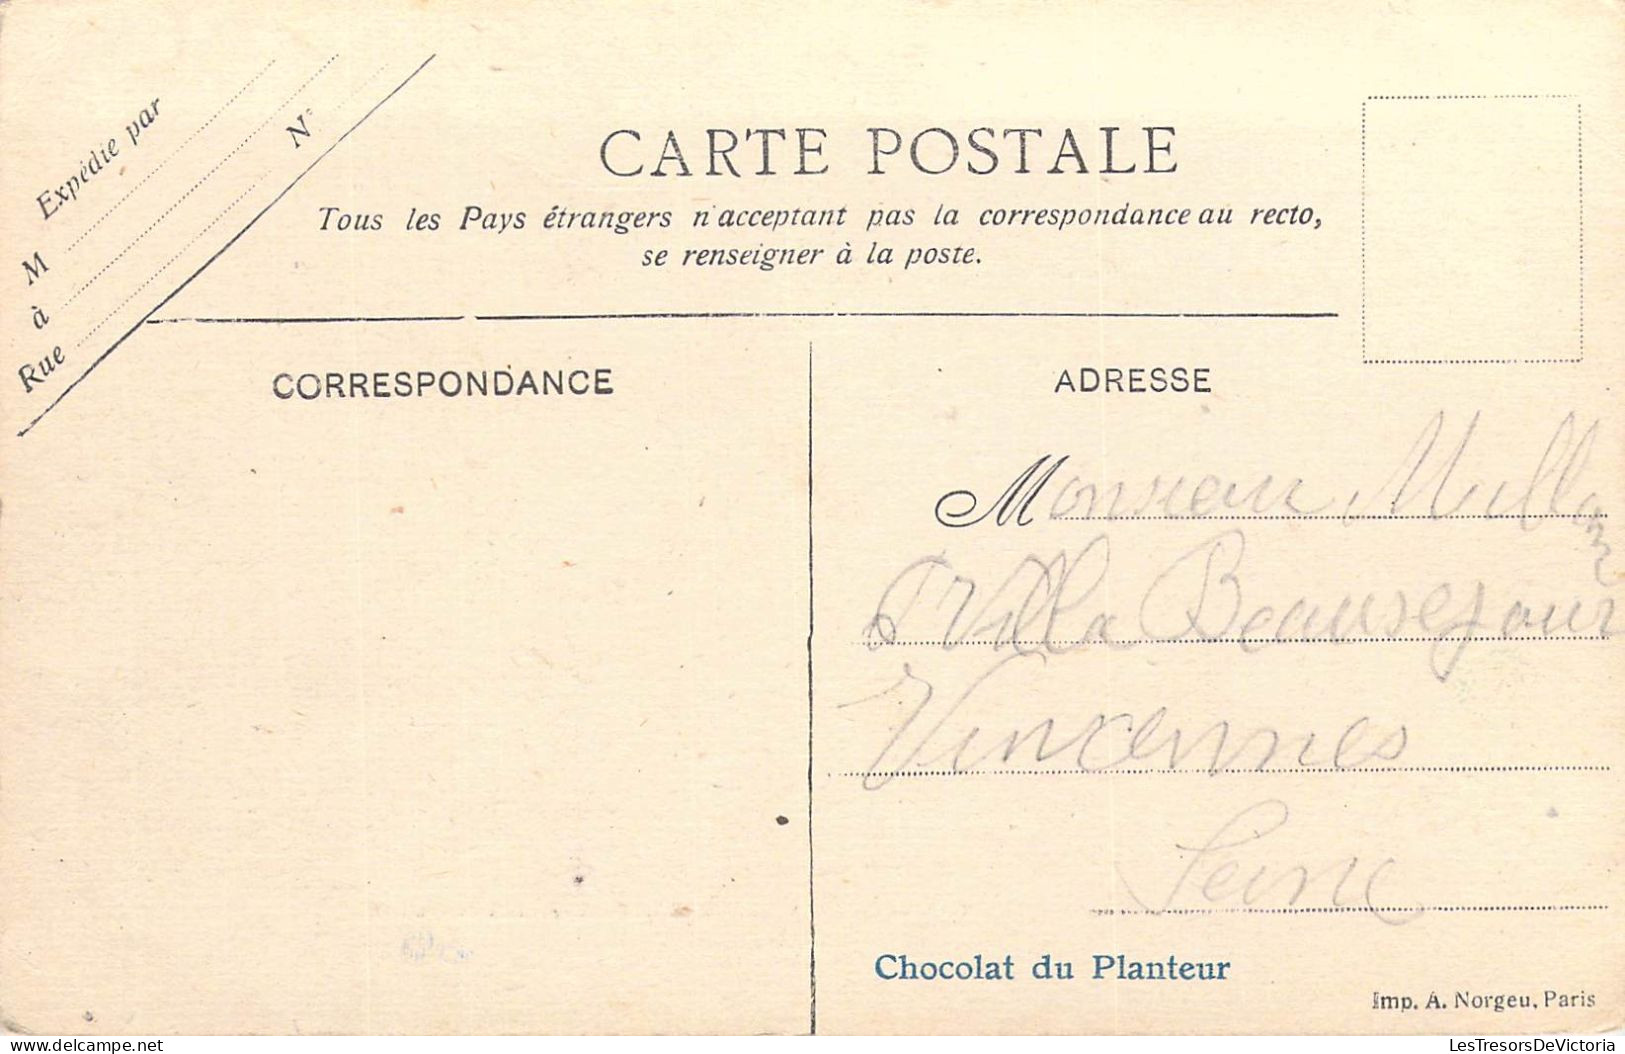 Expédie par
M
à
Rue N°
CARTE POSTALE
Tous les Pays étrangers n'acceptant pas la correspondance au recto,
se renseigner à la poste.
CORRESPONDANCE
ADRESSE
Monsieur
Villa Beausejour
Vincennes
Seine
Chocolat du Planteur
Imp. A. Norgeu, Paris
LesTresorsDeVictoria